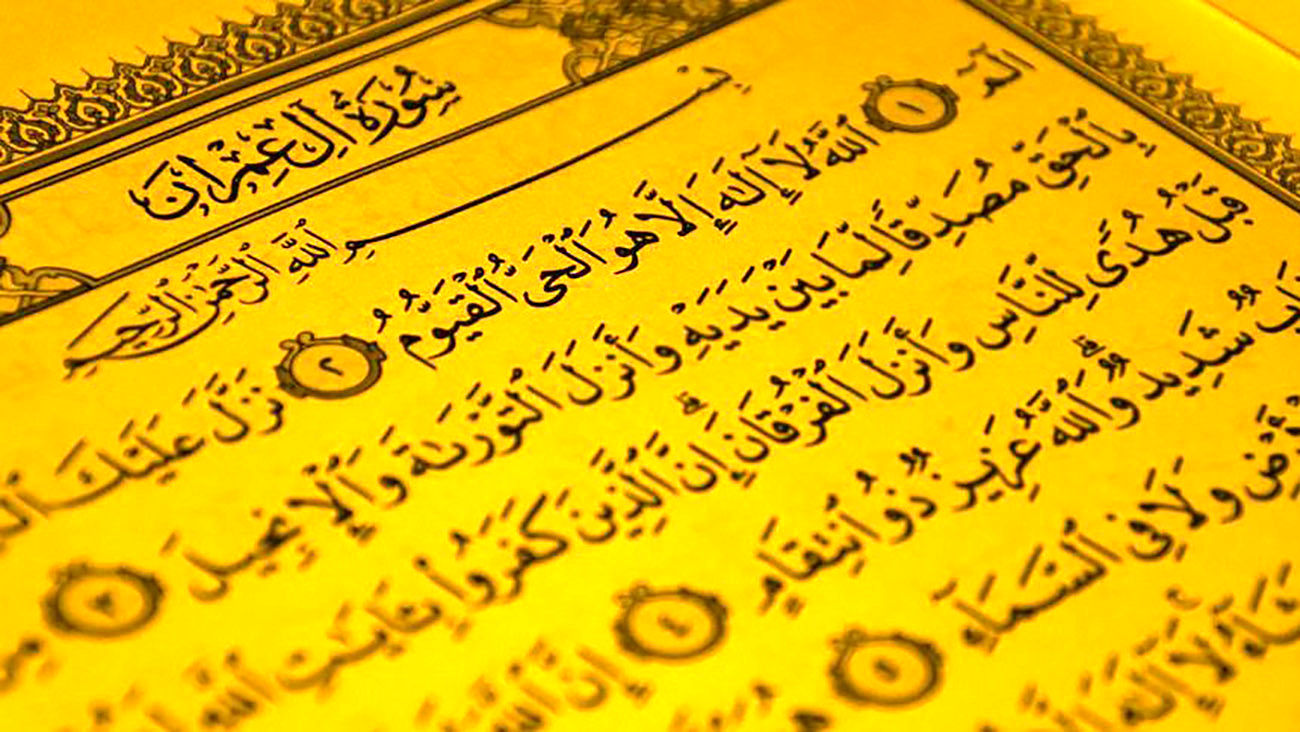 سُورَةُ آلِ عِمْرَانَ
بِسْمِ ٱللَّهِ ٱلرَّحْمَٰنِ ٱلرَّحِيمِ
الٓمٓ ١ ٱللَّهُ لَآ إِلَٰهَ إِلَّا هُوَ ٱلْحَىُّ ٱلْقَيُّومُ ٢ نَزَّلَ عَلَيْكَ
بِٱلْحَقِّ مُصَدِّقًا لِّمَا بَيْنَ يَدَيْهِ وَأَنزَلَ ٱلتَّوْرَىٰةَ وَٱلْإِنجِيلَ ٣
قَبْلُ هُدًى لِّلنَّاسِ وَأَنزَلَ ٱلْفُرْقَانَ ۗ إِنَّ ٱلَّذِينَ كَفَرُوا۟ بِـَٔايَٰتِ ٱللَّهِ
شَدِيدٌ ۗ وَٱللَّهُ عَزِيزٌ ذُو ٱنتِقَامٍ ٤ إِنَّ ٱللَّهَ
وَلَا فِى ٱلسَّمَآءِ ٥
لَآ إِلَٰهَ